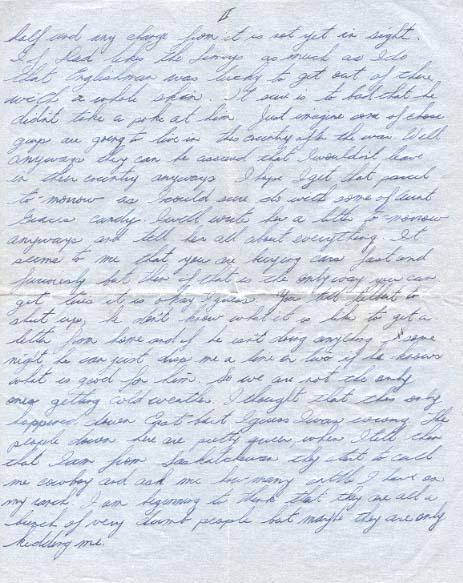 II
half and any change from it is not yet in sight.
If Dad likes the limeys as much as I do
that Englishman was lucky to get out of there
with a whole skin. It sure is to bad that he
didn't take a poke at him. Just imagine some of those
guys are going to live in this country after the war. Well
anyways they can be assured that I wouldn't leave
in their country anyways. I hope I get that parcel
to-morrow as I could sure do with some of Aunt
candy. I will write her a letter to-morrow
anyways and tell her all about everything. It
seems to me that you are buying cars fast and
furiously but then if that is the only way you can
get tires it is okay I guess. You tell to
shut up, he don't know what it is like to get a
letter from home and if he isn't doing anything some
night he can just drop me a line or two if he knows
what is good for him. So we are not the only
ones getting cold weather. I thought that this only
happened down East but I guess I was wrong. The
people down here are pretty queer when I tell them
that I am from Saskatchewan they start to call
me cowboy and ask me how many cattle I have on
my ranch. I am beginning to think that they are all a
bunch of very dumb people but maybe they are only
kidding me.